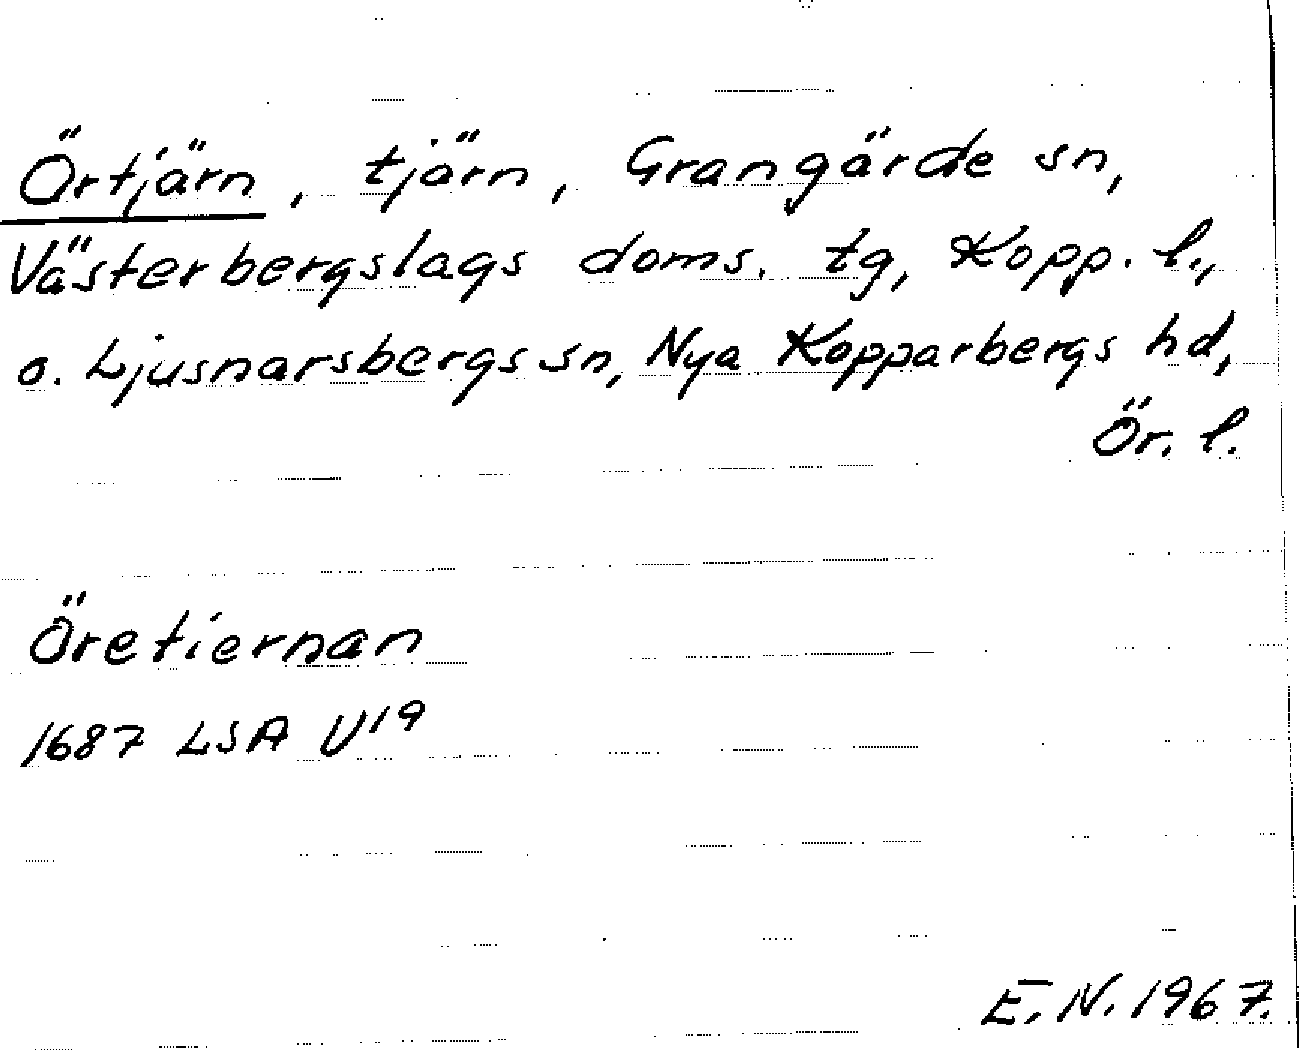 Örtjärn, tjärn, Grangärde sn,
Västerbergslags doms. tg, Kopp. l.,
o. Ljusnarsbergs sn, Nya Kopparbergs hd,
Ör. l.
Öretiernan
1687 LSA U19
E. N. 1967.